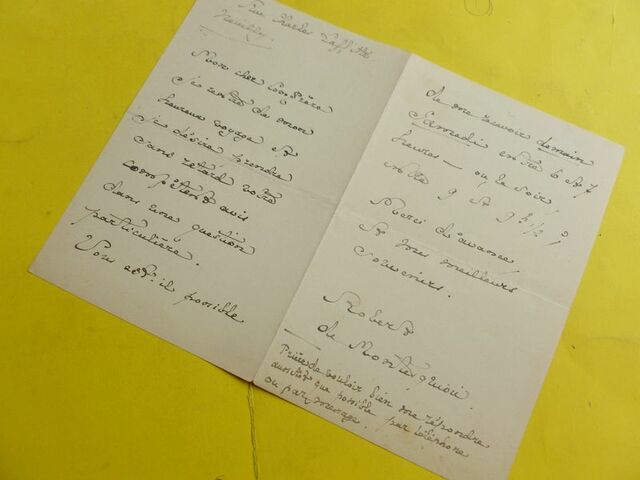 Rue Charles Laffitte
Neuilly.
Mon cher Confrère
Je rentre de mon
heureux voyage et
Je désire prendre
sans retard votre
compétent avis
dans une question
particulière.
Vous est-il possible
de me recevoir demain
Samedi entre 6 et 7
heures — ou le soir,
entre 9 et 9 h 1/2 ?
Merci d'avance,
et mes meilleurs
souvenirs.
Robert
de Montesquiou.
Prière de vouloir bien me répondre
aussitôt que possible par téléphone
ou par message.